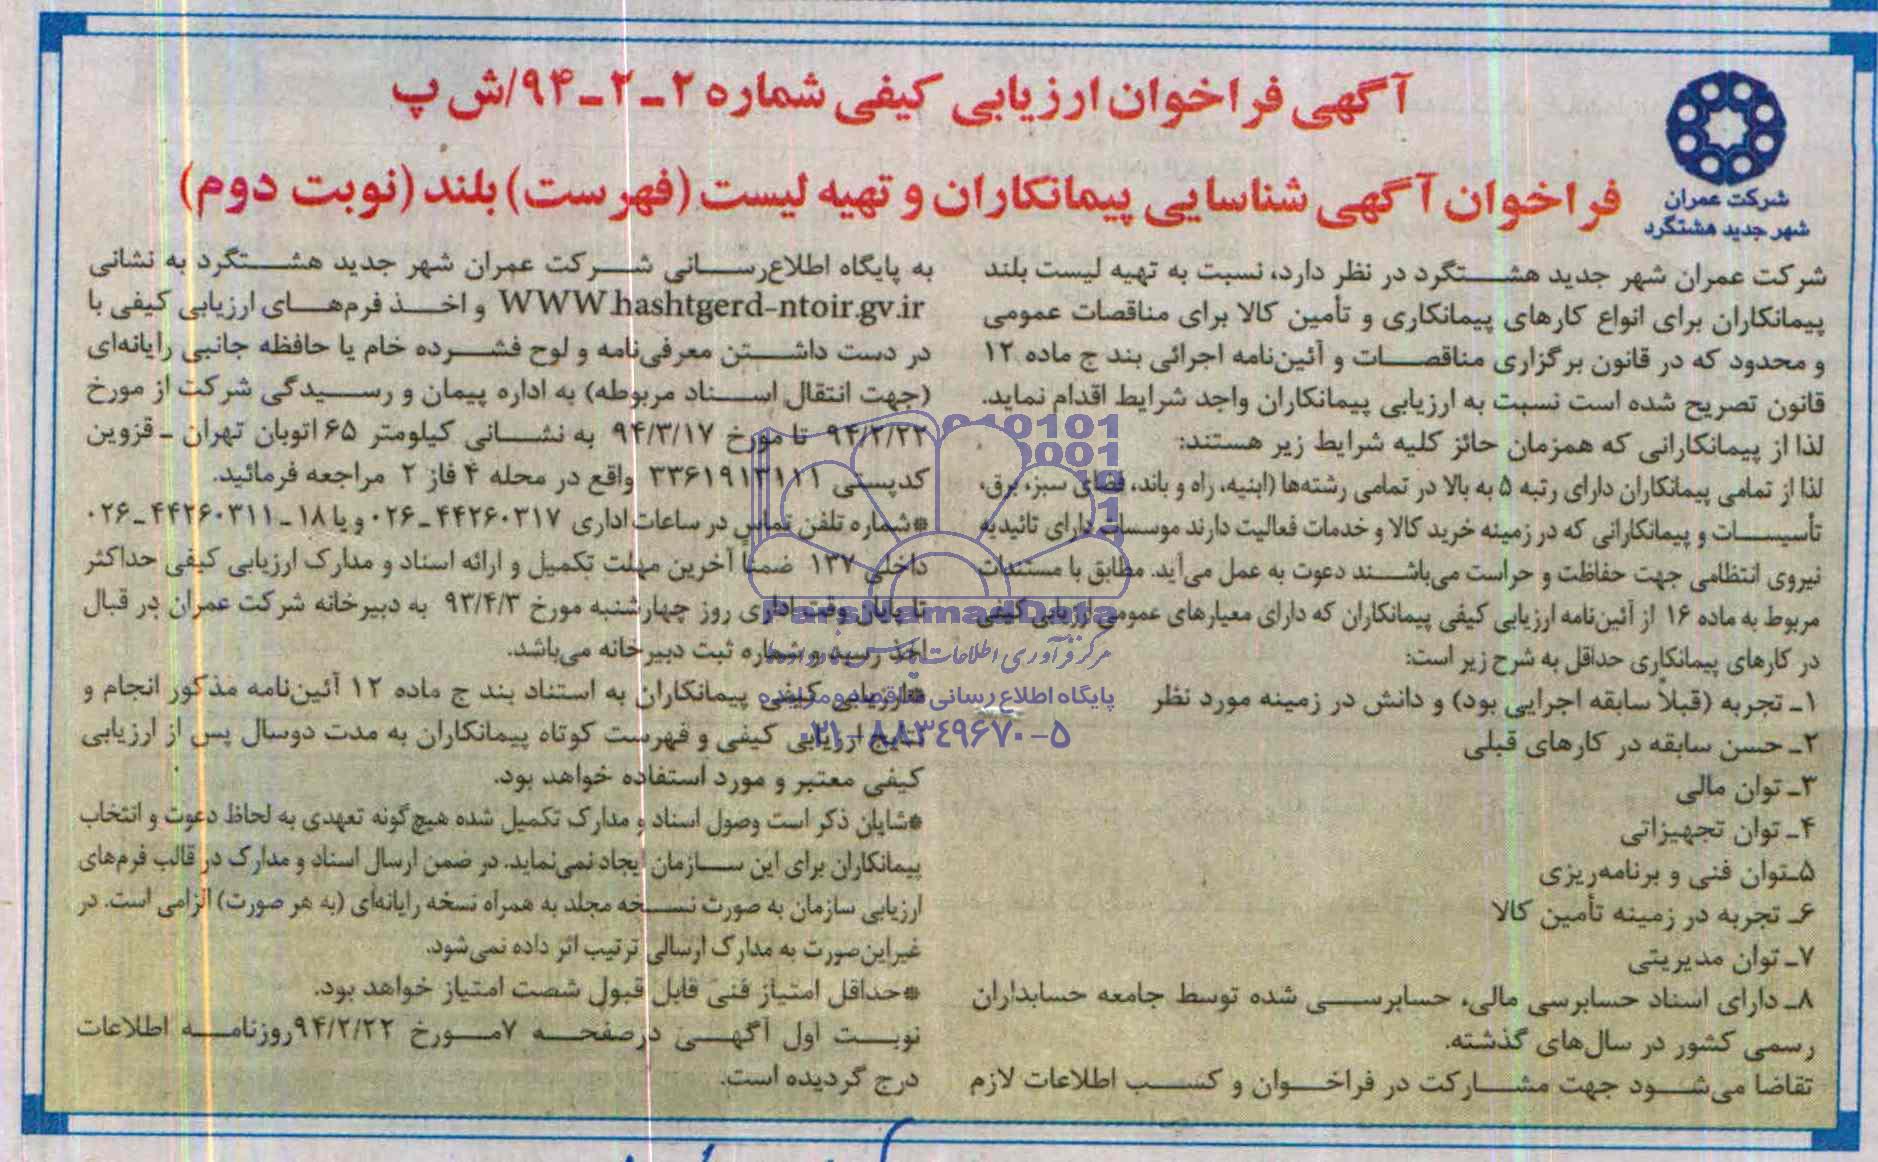 آگهی فراخوان ارزیابی کیفی شماره ۲ـ۲ـ۹۴/ش پ
فراخوان آگهی شناسایی پیمانکاران و تهیه لیست (فهرست) بلند (نوبت دوم)
شرکت عمران
شهر جدید هشتگرد
شرکت عمران شهر جدید هشتگرد در نظر دارد، نسبت به تهیه لیست بلند
پیمانکاران برای انواع کارهای پیمانکاری و تأمین کالا برای مناقصات عمومی
و محدود که در قانون برگزاری مناقصات و آئین‌نامه اجرائی بند ج ماده ۱۲
قانون تصریح شده است نسبت به ارزیابی پیمانکاران واجد شرایط اقدام نماید.
لذا از پیمانکارانی که همزمان حائز کلیه شرایط زیر هستند:
لذا از تمامی پیمانکاران دارای رتبه ۵ به بالا در تمامی رشته‌ها (ابنیه، راه و باند، فضای سبز، برق،
تأسیسات و پیمانکارانی که در زمینه خرید کالا و خدمات فعالیت دارند موسسات دارای تائیدیه
نیروی انتظامی جهت حفاظت و حراست می‌باشند دعوت به عمل می‌آید. مطابق با مستندات
مربوط به ماده ۱۶ از آئین‌نامه ارزیابی کیفی پیمانکاران که دارای معیارهای عمومی ارزیابی کیفی
در کارهای پیمانکاری حداقل به شرح زیر است:
۱ـ تجربه (قبلاً سابقه اجرایی بود) و دانش در زمینه مورد نظر
۲ـ حسن سابقه در کارهای قبلی
۳ـ توان مالی
۴ـ توان تجهیزاتی
۵ـتوان فنی و برنامه‌ریزی
۶ـ تجربه در زمینه تأمین کالا
۷ـ توان مدیریتی
۸ـ دارای اسناد حسابرسی مالی، حسابرسی شده توسط جامعه حسابداران
رسمی کشور در سال‌های گذشته.
تقاضا می‌شود جهت مشارکت در فراخوان و کسب اطلاعات لازم
به پایگاه اطلاع‌رسانی شرکت عمران شهر جدید هشتگرد به نشانی
WWW.hashtgerd-ntoir.gv.ir و اخذ فرم‌های ارزیابی کیفی با
در دست داشتن معرفی‌نامه و لوح فشرده خام یا حافظه جانبی رایانه‌ای
(جهت انتقال اسناد مربوطه) به اداره پیمان و رسیدگی شرکت از مورخ
۹۴/۲/۲۲ تا مورخ ۹۴/۳/۱۷ به نشانی کیلومتر ۶۵ اتوبان تهران ـ قزوین
کدپستی ۳۳۶۱۹۱۳۱۱۱ واقع در محله ۴ فاز ۲ مراجعه فرمائید.
*شماره تلفن تماس در ساعات اداری ۴۴۲۶۰۳۱۷ـ۰۲۶ و یا ۱۸ـ۴۴۲۶۰۳۱۱ـ۰۲۶
داخلی ۱۳۷ ضمناً آخرین مهلت تکمیل و ارائه اسناد و مدارک ارزیابی کیفی حداکثر
تا پایان وقت اداری روز چهارشنبه مورخ ۹۳/۴/۳ به دبیرخانه شرکت عمران در قبال
اخذ رسید و شماره ثبت دبیرخانه می‌باشد.
*ارزیابی کیفی پیمانکاران به استناد بند ج ماده ۱۲ آئین‌نامه مذکور انجام و
نتایج ارزیابی کیفی و فهرست کوتاه پیمانکاران به مدت دوسال پس از ارزیابی
کیفی معتبر و مورد استفاده خواهد بود.
*شایان ذکر است وصول اسناد و مدارک تکمیل شده هیچ‌گونه تعهدی به لحاظ دعوت و انتخاب
پیمانکاران برای این سازمان ایجاد نمی‌نماید. در ضمن ارسال اسناد و مدارک در قالب فرم‌های
ارزیابی سازمان به صورت نسخه مجلد به همراه نسخه رایانه‌ای (به هر صورت) الزامی است. در
غیراین‌صورت به مدارک ارسالی ترتیب اثر داده نمی‌شود.
*حداقل امتیاز فنی قابل قبول شصت امتیاز خواهد بود.
نوبت اول آگهی درصفحه ۷مورخ ۹۴/۲/۲۲روزنامه اطلاعات
درج گردیده است.
ParsNamadData
پایگاه اطلاع رسانی مناقصه و مزایده
۰۲۱-۸۸۳۴۹۶۷۰-۵